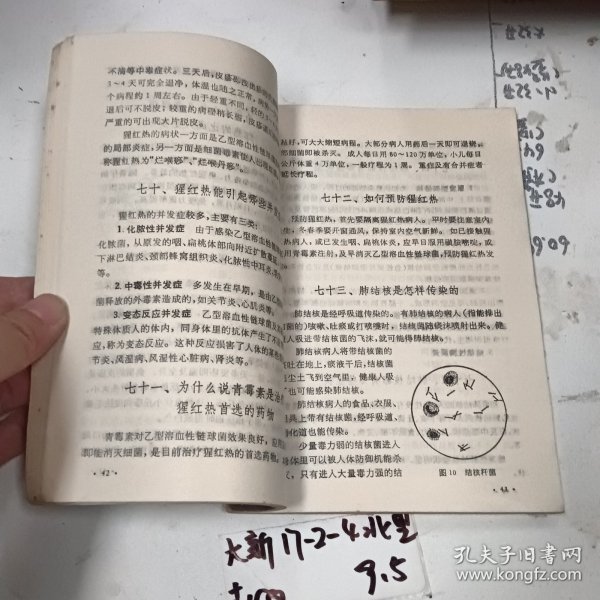 不痛等中毒症状。三天后，皮疹
3～4天可完全退净，体温也随之正常，
个病程约1周左右。由于轻重不同，轻的
退后可不脱皮；较重的病程稍长些，皮疹
严重的可出现大片脱皮。
猩红热的病状一方面是乙型溶血性链球
的局部炎症，另一方面是细菌毒素
称猩红热为“烂喉痧”、“烂喉丹痧”。
七十、猩红热能引起哪些并
猩红热的并发症较多，主要有三类：
1. 化脓性并发症 由于感染乙型溶血性
化脓菌，从原发的咽、扁桃体部向附近扩散蔓延
下淋巴结炎、颈部蜂窝组织炎、化脓性中耳炎
等。
2. 中毒性并发症 多发生在早期，是由
菌释放的外毒素造成的，如关节炎、心肌炎等。
3. 变态反应并发症 乙型溶血性链球菌及
特殊体质人的体内，同身体里的抗体产生了不
应，称为变态反应。这种反应损害了人体的某些
节炎、风湿病、风湿性心脏病、肾炎等。
七十一、为什么说青霉素是治
猩红热首选的药物
青霉素对乙型溶血性链球菌效果良好，应用
即能消灭细菌，是目前治疗猩红热的首选药物。
·42·
粘好，可大大缩短病程。大部分病人用药后一天即可退烧，
部细菌即被杀灭。成人每日用80～120万单位，小儿每日
公斤体重4万单位，一般疗程为1周。重症及有合并症者
延长疗程。
七十二、如何预防猩红热
预防猩红热，首先要隔离猩红热病人。平时要注意室内
生，冬春季要开窗通风，保持室内空气新鲜。如已接触猩
热病人，或已发生咽炎、扁桃体炎，应早日服用磺胺嘧啶，或
用青霉素注射，及早消灭乙型溶血性链球菌，预防猩红热发
七十三、肺结核是怎样传染的
肺结核是经呼吸道传染的。有肺结核的病人（指能排出
菌的）咳嗽、吐痰或打喷嚏时，结核菌随痰沫喷射出来。健
人吸进带结核菌的飞沫，就可能得肺结核。
肺结核病人将带结核菌的
吐在地上，痰液干后，结核菌
尘土飞到空气里，健康人吸
也可能感染肺结核。
肺结核病人的食品、衣服、
具上带有结核菌，经呼吸道、
化道也能传染。
少量毒力弱的结核菌进入
身体里可以被人体防御机能杀
，只有进入大量毒力强的结
图10 结核杆菌
大新17-2-4
9.5
孔夫子旧书网
www.kongfz.com